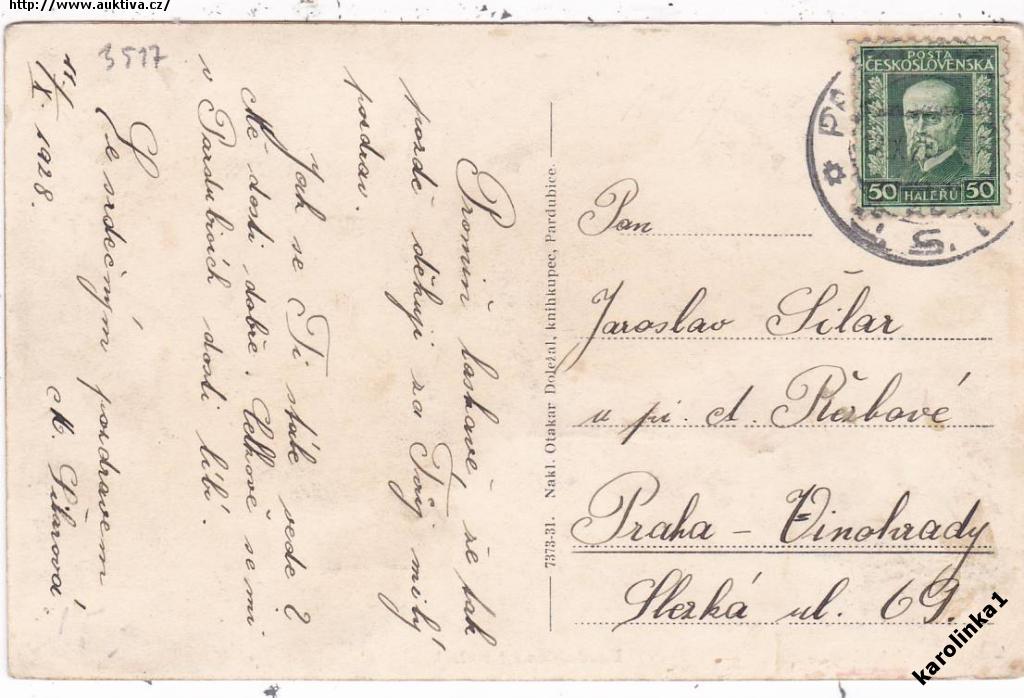 http://www.auktiva.cz/
3517
Promiň laskavě, že tak
pozdě děkuji za Tvůj milý
pozdrav.
Jak se Ti stále vede?
Mě dosti dobře. Celkově se mi
v Pardubicích dosti líbí.
Se srdečným pozdravem
11./X. 1928.
7373-31. Nakl. Otakar Doležal, knihkupec, Pardubice.
POSTA
ČESKOSLOVENSKÁ
50 HALÉŘŮ 50
Pan
Jaroslav Šilar
u pí. A. Řezbové
Praha - Vinohrady
Slezká ul. 69.
karolinka1